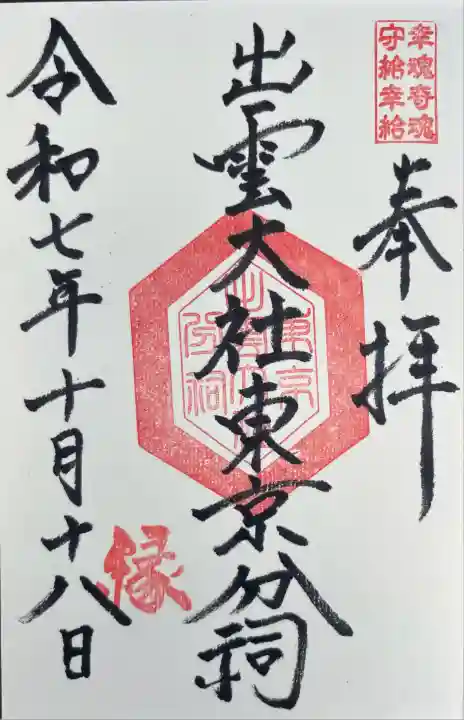 幸魂奇魂
守給幸給
奉拝
出雲大社東京分祠
出雲大社東京分祠
縁
令和七年十月十八日